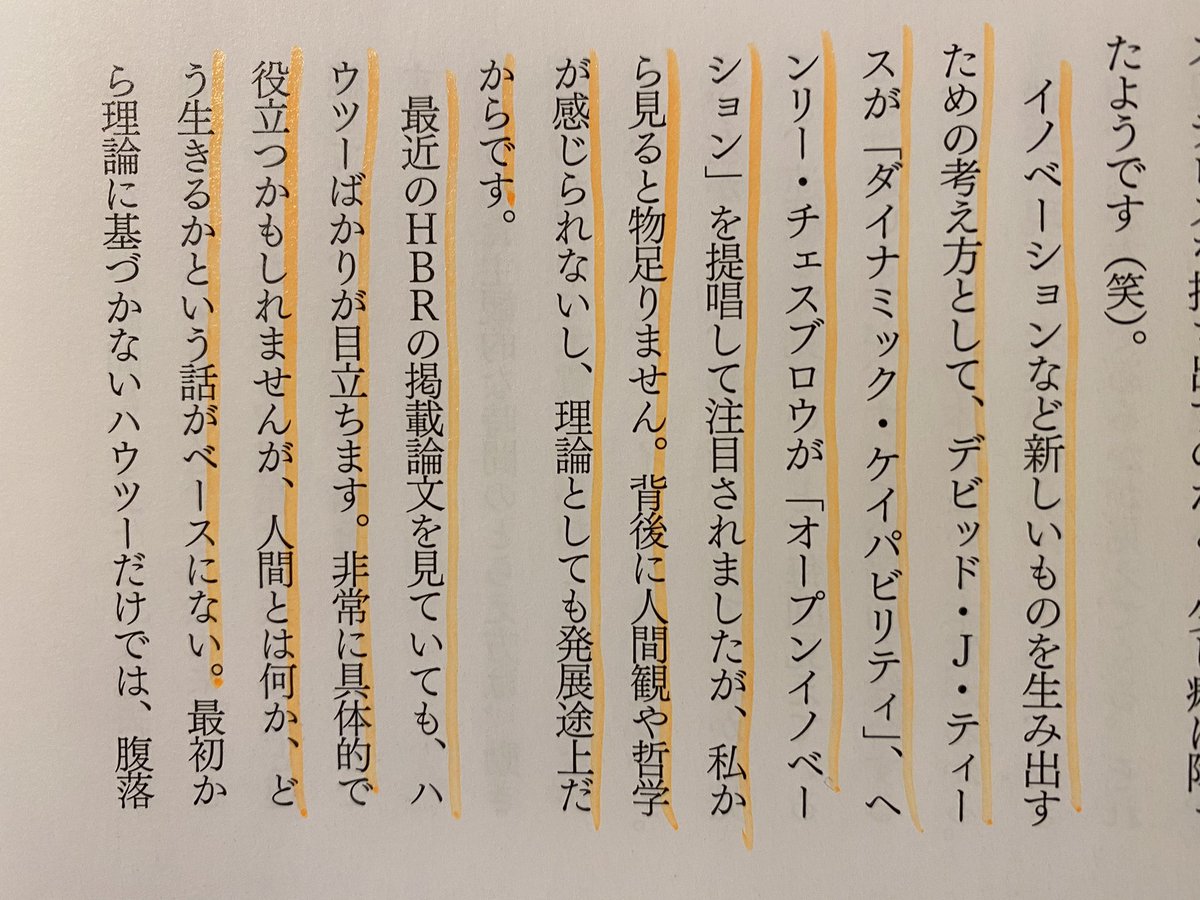 たようです（笑）。
イノベーションなど新しいものを生み出す
ための考え方として、デビッド・J・ティー
スが「ダイナミック・ケイパビリティ」、ヘ
ンリー・チェスブロウが「オープンイノベー
ション」を提唱して注目されましたが、私か
ら見ると物足りません。背後に人間観や哲学
が感じられないし、理論としても発展途上だ
からです。
最近のHBRの掲載論文を見ていても、ハ
ウツーばかりが目立ちます。非常に具体的で
役立つかもしれませんが、人間とは何か、ど
う生きるかという話がベースにない。最初か
ら理論に基づかないハウツーだけでは、腹落